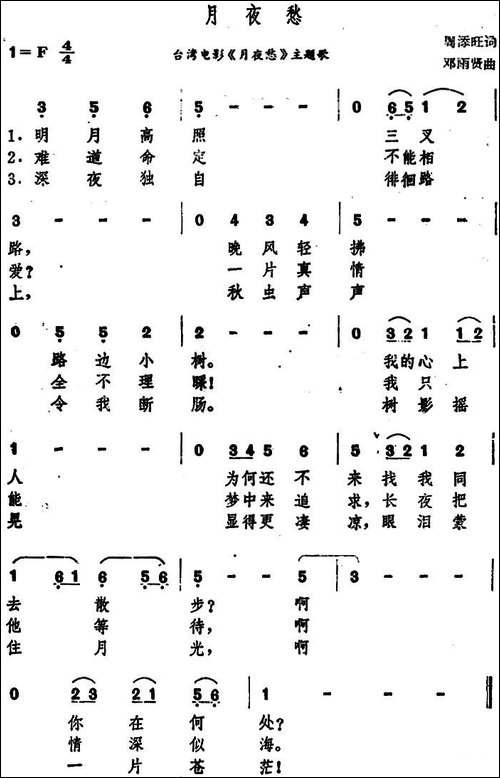 月夜愁
1=F 4/4
台湾电影《月夜愁》主题歌
周添旺词
邓雨贤曲
3 5 6 | 5 - - - | 0 65 1 2
1. 明 月 高 照 三 叉
2. 难 道 命 定 不 能 相
3. 深 夜 独 自 徘 徊 路
3 - - - | 0 4 3 4 | 5 - - -
路, 晚 风 轻 拂
爱? 一 片 真 情
上, 秋 虫 声 声
0 5 5 2 | 2 - - - | 0 32 1 12
路 边 小 树。 我 的 心 上
全 不 理 睬! 我 只
令 我 断 肠。 树 影 摇
1 - - - | 0 34 5 6 | 5 32 1 2
人 为 何 还 不 来 找 我 同
能 梦 中 来 追 求, 长 夜 把
晃 显 得 更 凄 凉, 眼 泪 蒙
1 61 6 56 | 5 - - 5 | 3 - - -
去 散 步? 啊
他 等 待, 啊
住 月 光, 啊
0 23 21 56 | 1 - - -
你 在 何 处?
情 深 似 海。
一 片 苍 茫!